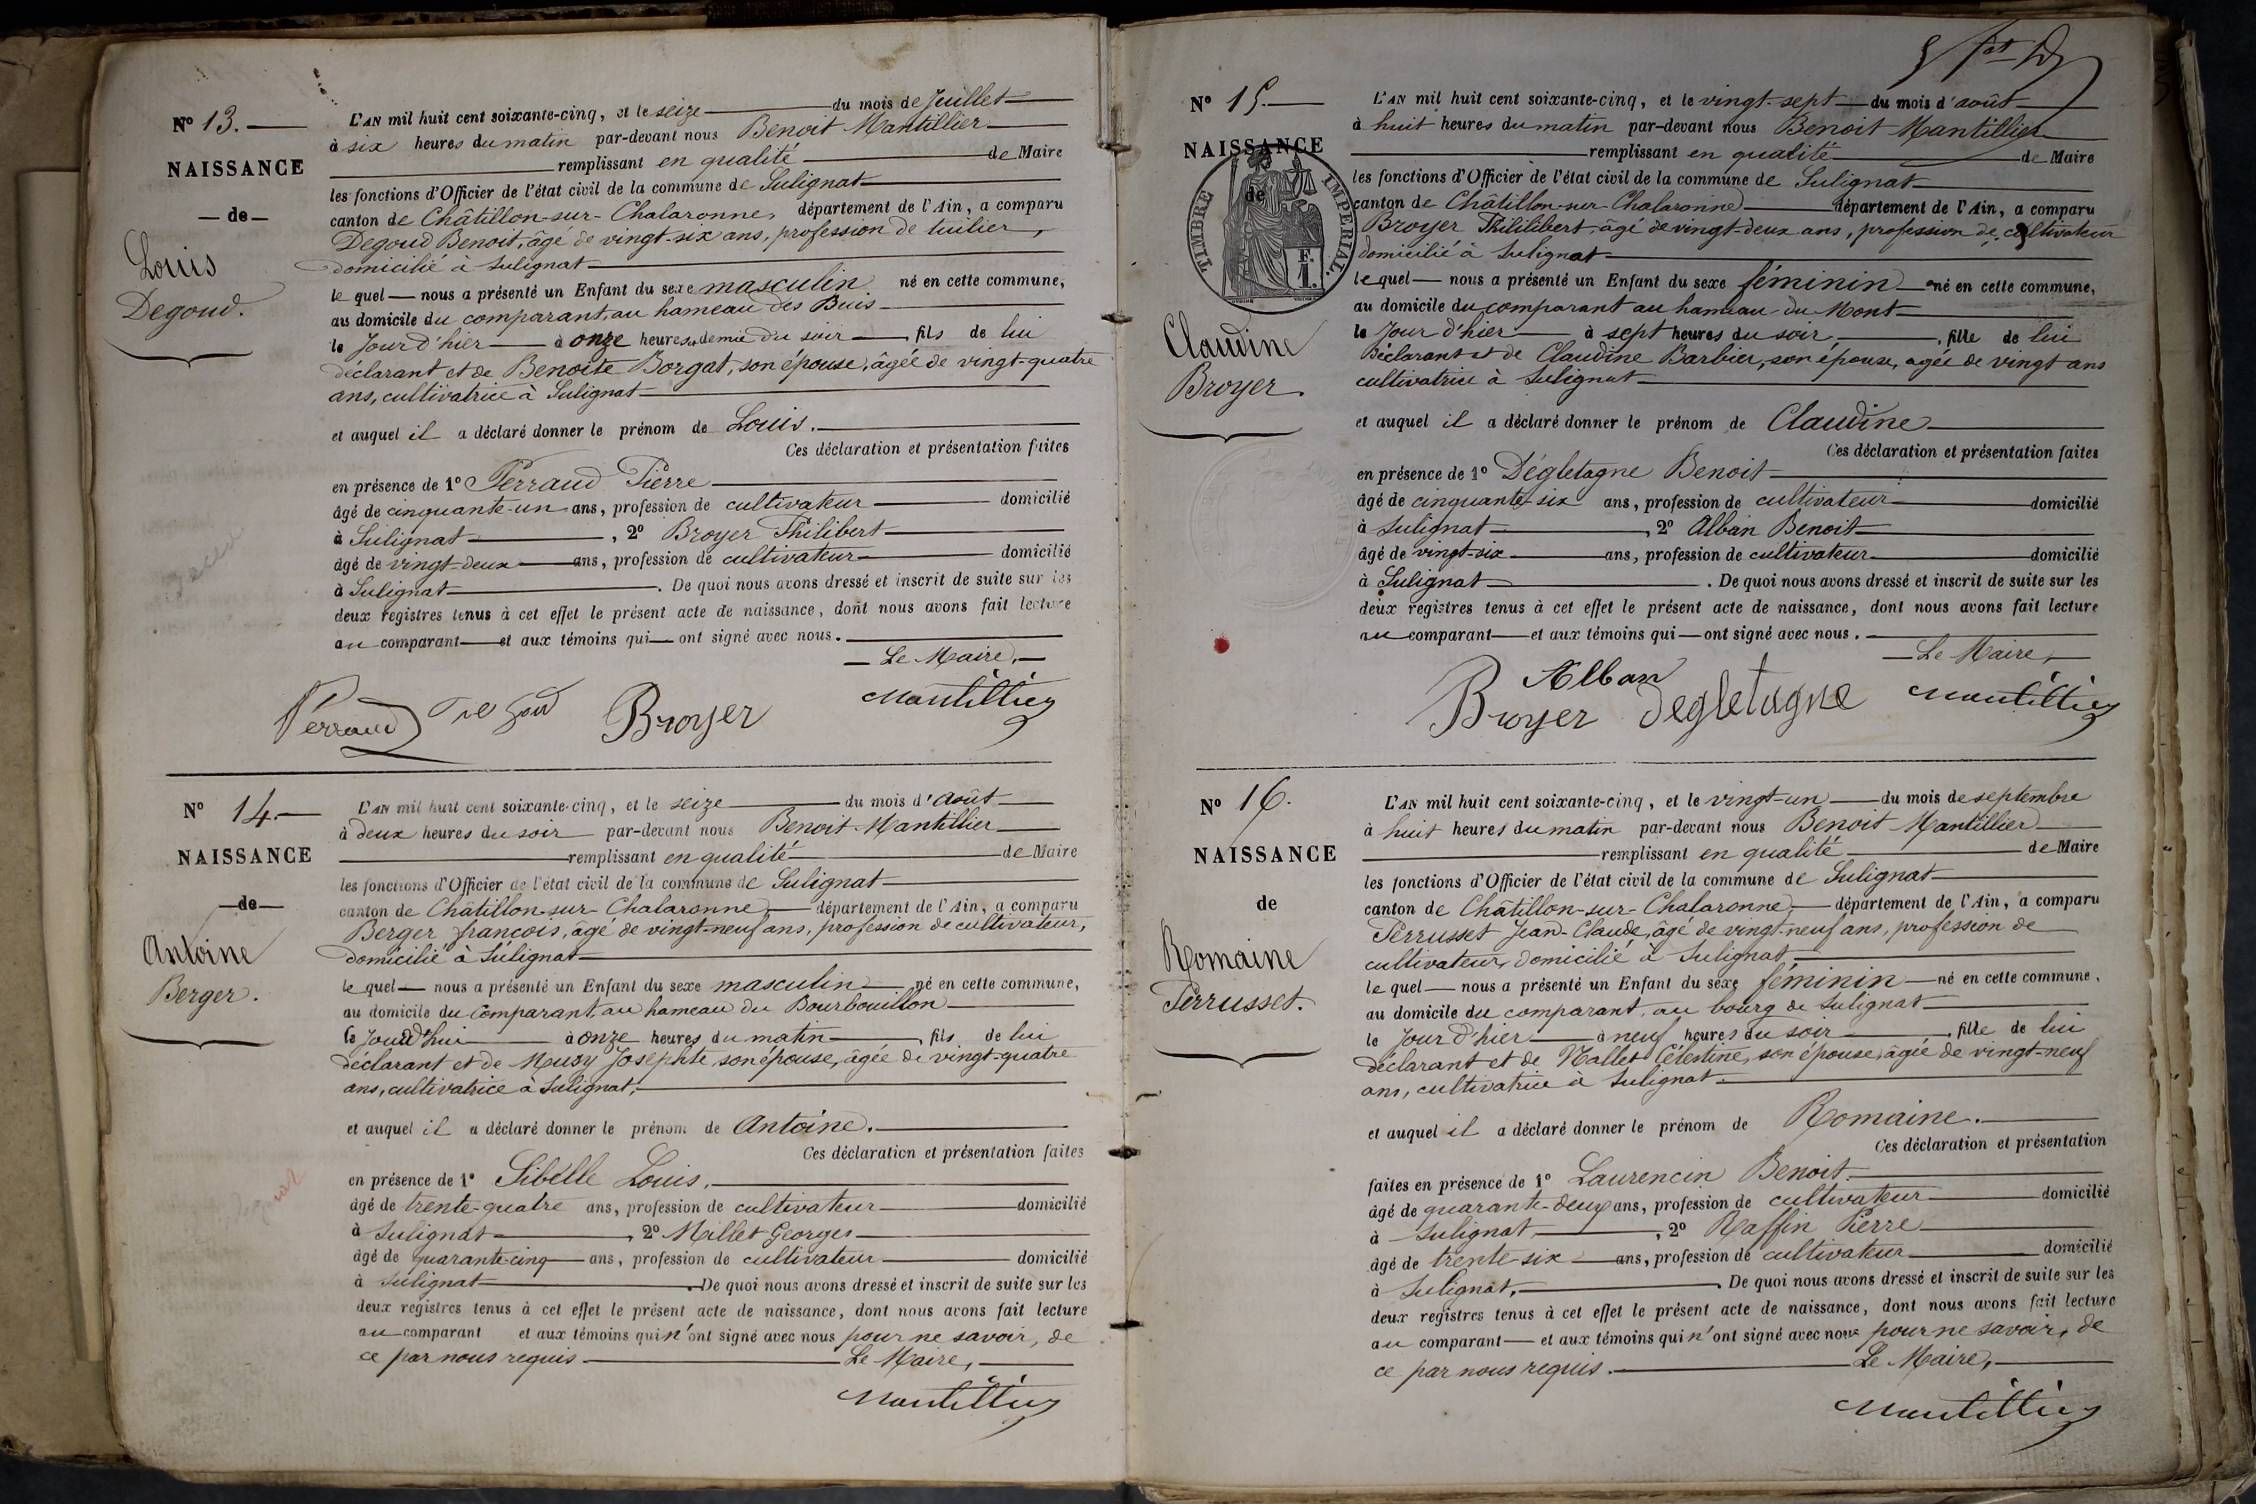 N° 13.
NAISSANCE
de
Louis
Degoud.
L'AN mil huit cent soixante-cinq, et le seize du mois de Juillet
à six heures du matin par-devant nous Benoit Mantillier
remplissant en qualité de Maire
les fonctions d'Officier de l'état civil de la commune de Sulignat
canton de Châtillon-sur-Chalaronne, département de l'Ain, a comparu
Degoud Benoit, âgé de vingt-six ans, profession de tuilier,
domicilié à Sulignat
lequel nous a présenté un Enfant du sexe masculin né en cette commune,
au domicile du comparant, au hameau des Buis
le Jour d'hier à onze heures & demie du soir, fils de lui
déclarant et de Benoite Borgat, son épouse, âgée de vingt-quatre
ans, cultivatrice à Sulignat
et auquel il a déclaré donner le prénom de Louis.
Ces déclaration et présentation faites
en présence de 1° Perraud Pierre
âgé de cinquante-un ans, profession de cultivateur domicilié
à Sulignat, 2° Broyer Philibert
âgé de vingt-deux ans, profession de cultivateur domicilié
à Sulignat. De quoi nous avons dressé et inscrit de suite sur les
deux registres tenus à cet effet le présent acte de naissance, dont nous avons fait lecture
au comparant et aux témoins qui ont signé avec nous.
Le Maire,
Perraud Degoud Broyer Mantillier
N° 14.
NAISSANCE
de
Antoine
Berger.
L'AN mil huit cent soixante-cinq, et le seize du mois d'Août
à deux heures du soir par-devant nous Benoit Mantillier
remplissant en qualité de Maire
les fonctions d'Officier de l'état civil de la commune de Sulignat
canton de Châtillon-sur-Chalaronne département de l'Ain, a comparu
Berger françois, âgé de vingt-neuf ans, profession de cultivateur,
domicilié à Sulignat
lequel nous a présenté un Enfant du sexe masculin né en cette commune,
au domicile du comparant, au hameau du Bourbouillon
le Jourd'hui à onze heures du matin, fils de lui
déclarant et de Musy Josephte, son épouse, âgée de vingt-quatre
ans, cultivatrice à Sulignat,
et auquel il a déclaré donner le prénom de Antoine.
Ces déclaration et présentation faites
en présence de 1° Sibelle Louis,
âgé de trente-quatre ans, profession de cultivateur domicilié
à Sulignat, 2° Millet Georges
âgé de quarante-cinq ans, profession de cultivateur domicilié
à Sulignat. De quoi nous avons dressé et inscrit de suite sur les
deux registres tenus à cet effet le présent acte de naissance, dont nous avons fait lecture
au comparant et aux témoins qui n'ont signé avec nous pour ne savoir, de
ce par nous requis Le Maire,
Mantillier
N° 15.
NAISSANCE
de
TIMBRE IMPERIAL.
F.
1.
Claudine
Broyer.
L'AN mil huit cent soixante-cinq, et le vingt-sept du mois d'août
à huit heures du matin par-devant nous Benoit Mantillier
remplissant en qualité de Maire
les fonctions d'Officier de l'état civil de la commune de Sulignat
canton de Châtillon-sur-Chalaronne département de l'Ain, a comparu
Broyer Philibert, âgé de vingt-deux ans, profession de cultivateur
domicilié à Sulignat
lequel nous a présenté un Enfant du sexe féminin né en cette commune,
au domicile du comparant au hameau du Mont
le Jour d'hier à sept heures du soir, fille de lui
déclarant et de Claudine Barbier, son épouse, agée de vingt ans
cultivatrice à Sulignat
et auquel il a déclaré donner le prénom de Claudine
Ces déclaration et présentation faites
en présence de 1° Dégletagne Benoit
âgé de cinquante-six ans, profession de cultivateur domicilié
à Sulignat, 2° Alban Benoit
âgé de vingt-six ans, profession de cultivateur domicilié
à Sulignat. De quoi nous avons dressé et inscrit de suite sur les
deux registres tenus à cet effet le présent acte de naissance, dont nous avons fait lecture
au comparant et aux témoins qui ont signé avec nous.
Le Maire,
Alban
Broyer degletagne Mantillier
N° 16.
NAISSANCE
de
Romaine
Perrusset.
L'AN mil huit cent soixante-cinq, et le vingt-un du mois de septembre
à huit heures du matin par-devant nous Benoit Mantillier
remplissant en qualité de Maire
les fonctions d'Officier de l'état civil de la commune de Sulignat
canton de Châtillon-sur-Chalaronne, département de l'Ain, a comparu
Perrusset Jean-Claude, âgé de vingt-neuf ans, profession de
cultivateur, domicilié à Sulignat
lequel nous a présenté un Enfant du sexe féminin né en cette commune,
au domicile du comparant, au bourg de Sulignat
le Jour d'hier à neuf heures du soir, fille de lui
déclarant et de Nallet Célestine, son épouse, âgée de vingt-neuf
ans, cultivatrice à Sulignat.
et auquel il a déclaré donner le prénom de Romaine.
Ces déclaration et présentation
faites en présence de 1° Laurencin Benoit
âgé de quarante-deux ans, profession de cultivateur domicilié
à Sulignat, 2° Raffin Pierre
âgé de trente-six ans, profession de cultivateur domicilié
à Sulignat. De quoi nous avons dressé et inscrit de suite sur les
deux registres tenus à cet effet le présent acte de naissance, dont nous avons fait lecture
au comparant et aux témoins qui n'ont signé avec nous pour ne savoir, de
ce par nous requis. Le Maire,
Mantillier